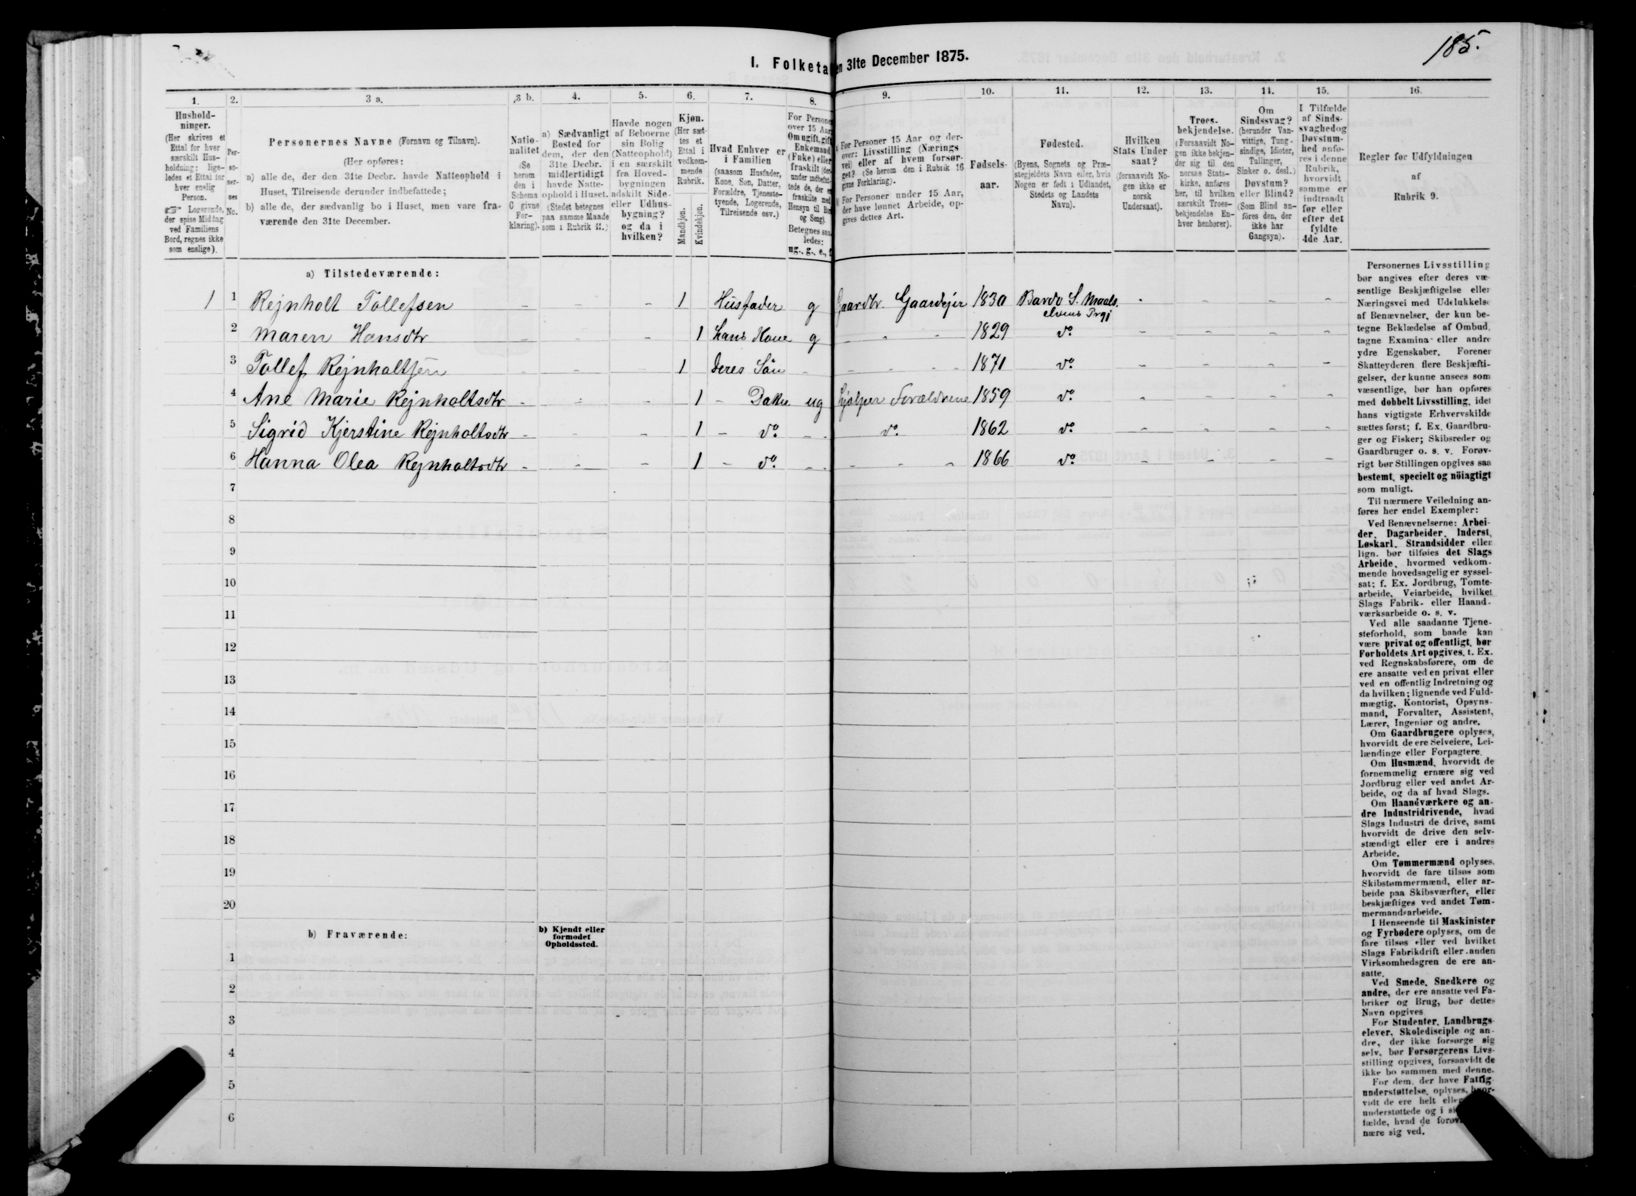 185.
I. Folketa
en 31te December 1875.
1. 2. 3 a. 3 b. 4. 5. 6. 7. 8. 9. 10. 11. 12. 13. 14. 15. 16.
Hushold-
ninger.
(Her skrives et
Ettal for hver
særskilt Hus-
holdning; lige-
ledes et Ettal for
hver enslig
Person.
☞ Logerende,
der spise Middag
ved Familiens
Bord, regnes ikke
som enslige).
Per-
so-
ner-
nes
No.
Personernes Navne (Fornavn og Tilnavn).
(Her opføres:
a) alle de, der den 31te Decbr. havde Natteophold i
Huset, Tilreisende derunder indbefattede;
b) alle de, der sædvanlig bo i Huset, men vare fra-
værende den 31te December.
Natio-
nalitet
(Se
herom
den i
Schema
C givne
For-
klaring).
a) Sædvanligt
Bosted for
dem, der den
31te Decbr.
midlertidigt
havde Natte-
ophold i Huset.
(Stedet betegnes
paa samme Maade
som i Rubrik 11.)
Havde nogen
af Beboerne
sin Bolig
(Natteophold)
i en særskilt
fra Hoved-
bygningen
adskilt Side-
eller Udhus-
bygning?
og da i
hvilken?
Kjøn.
(Her sæt-
tes et
Ettal i
vedkom-
mende
Rubrik.
Mandkjøn.
Kvindekjøn.
Hvad Enhver er
i Familien
(saasom Husfader,
Kone, Søn, Datter,
Forældre, Tjeneste-
tyende, Logerende,
Tilreisende osv.)
For Personer
over 15 Aar
Om ugift, gift
Enkemand
(Enke) eller
fraskilt
Betegnes saa-
ledes:
ug., g., e., f.
For Personer 15 Aar og der-
over: Livsstilling (Nærings
vei) eller af hvem forsør-
get? (Se herom den i Rubrik 16
givne Forklaring).
For Personer under 15 Aar,
der have lønnet Arbeide, op-
gives dettes Art.
Fødsels-
aar.
Fødested.
(Byens, Sognets og Præ-
stegjeldets Navn eller, hvis
Nogen er født i Udlandet,
Stedets og Landets
Navn).
Hvilken
Stats Under
saat?
(forsaavidt No-
gen ikke er
norsk
Undersaat).
Troes-
bekjendelse.
(Forsaavidt No-
gen ikke bekjen-
der sig til den
norske Stats-
kirke, anføres
her, til hvilken
særskilt Troes-
bekjendelse En-
hver henhører).
Om
Sindssvag?
(herunder Van-
vittige, Tung-
sindige, Idioter,
Tullinger,
Sinker o. desl.)
Døvstum?
eller Blind?
(Som Blind an-
føres den, der
ikke har
Gangsyn).
I Tilfælde
af Sinds-
svaghed og
Døvstum-
hed anfø-
res i denne
Rubrik,
hvorvidt
samme er
indtraadt
før eller
efter det
fyldte
4de Aar.
Regler for Udfyldningen
af
Rubrik 9.
a) Tilstedeværende:
1 1 Rejnholt Tollefsen - - - 1 Husfader g Gaardbr. Gaardejer 1830 Bardo S. Maals
elvens Prgj
2 Maren Hansdtr 1 hans Kone g - 1829 do
3 Tollef Rejnholtsen 1 deres Søn - 1871 do
4 Ane Marie Rejnholtsdtr 1 - Datter ug hjælper Forældrene 1859 do
5 Sigrid Kjerstine Rejnholtsdtr 1 - do - do 1862 do
6 Hanna Olea Rejnholtsdtr 1 - do - 1866 do
7
8
9
10
11
12
13
14
15
16
17
18
19
20
b) Fraværende:
b) Kjendt eller
formodet
Opholdssted.
1
2
3
4
5
6
Personernes Livsstilling
bør angives efter deres væ
sentlige Beskjæftigelse eller
Næringsvei med Udelukkelse
af Benævnelser, der kun be-
tegne Beklædelse af Ombud,
tagne Examina eller andre
ydre Egenskaber. Forener
Skatteyderen flere Beskjæfti-
gelser, der kunne ansees som
væsentlige, bør han opføres
med dobbelt Livsstilling, idet
hans vigtigste Erhvervskilde
sættes først; f. Ex. Gaardbru-
ger og Fisker; Skibsreder og
Gaardbruger o. s. v. Forøv-
rigt bør Stillingen opgives saa
bestemt, specielt og nöiagtigt
som muligt.
Til nærmere Veiledning an-
føres her endel Exempler:
Ved Benævnelserne: Arbei-
der, Dagarbeider, Inderst,
Løskarl, Strandsidder eller
lign. bør tilføies det Slags
Arbeide, hvormed vedkom-
mende hovedsagelig er syssel-
sat; f. Ex. Jordbrug, Tomte-
arbeide, Veiarbeide, hvilket
Slags Fabrik- eller Haand-
værksarbeide o. s. v.
Ved alle saadanne Tjene-
steforhold, som baade kan
være privat og offentligt, bør
Forholdets Art opgives, f. Ex.
ved Regnskabsførere, om de
ere ansatte ved en privat eller
ved en offentlig Indretning og
da hvilken; lignende ved Fuld-
mægtig, Kontorist, Opsyns-
mand, Forvalter, Assistent,
Lærer, Ingeniør og andre.
Om Gaardbrugere oplyses,
hvorvidt de ere Selveiere, Lei-
lændinge eller Forpagtere.
Om Husmænd, hvorvidt de
fornemmelig ernære sig ved
Jordbrug eller ved andet Ar-
beide, og da af hvad Slags.
Om Haandværkere og an-
dre Industridrivende, hvad
Slags Industri de drive, samt
hvorvidt de drive den selv-
stændigt eller ere i andres
Arbeide.
Om Tømmermænd oplyses,
hvorvidt de fare tilsøs som
Skibstømmermænd, eller ar-
beide paa Skibsværfter, eller
beskjæftiges ved andet Tøm-
mermandsarbeide.
I Henseende til Maskinister
og Fyrbødere oplyses, om de
fare tilsøs eller ved hvilket
Slags Fabrikdrift eller anden
Virksomhedsgren de ere an-
satte.
Ved Smede, Snedkere og
andre, der ere ansatte ved Fa-
briker og Brug, bør dettes
Navn opgives
For Studenter, Landbrugs-
elever, Skoledisciple og an-
dre, der ikke forsørge sig
selv, bør Forsørgerens Livs-
stilling opgives, forsaavidt de
ikke bo sammen med denne.
For dem, der have Fattig-
understøttelse, oplyses, hvor-
vidt de ere helt eller
understøttede og i
fælde, hvad de forøv
nære sig ved.